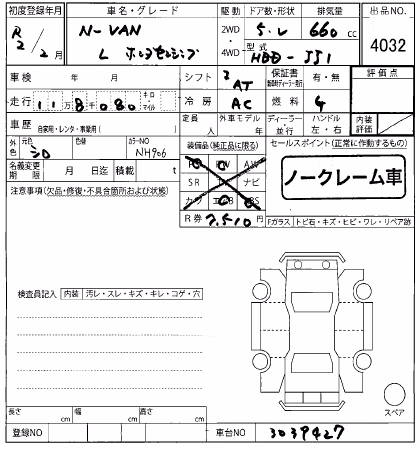 初度登録年月
車名・グレード
駆動
ドア数・形状
排気量
出品NO.
R2 / 2月
N-VAN
2WD
4WD
5.
660 cc
4032
L ホンダセンシング
型式
HBD-JJ1
車検 年 月
シフト
AT
保証書
有・無
評価点
走行 11万8千080 キロ・マイル
冷房
AC
燃料
G
車歴
自家用・レンタ・事業用( )
定員
人
外車モデル
年
ディーラー
並行
ハンドル
左・右
内装評価
外色
元色
シロ
色替
カラーNO
NH906
装備品(純正品に限る)
セールスポイント(正常に作動するもの)
PS PW AW
SR ナビ
カワ エアB ABS
ノークレーム車
名義変更期限
月 日迄
積載
t
R券
7,510 円
注意事項(欠品・修復・不具合箇所および状態)
Fガラス トビ石・キズ・ヒビ・ワレ・リペア跡
検査員記入
内装
汚レ・スレ・キズ・キレ・コゲ・穴
スペア
長さ cm
幅 cm
高さ cm
登録NO
車台NO
3039427